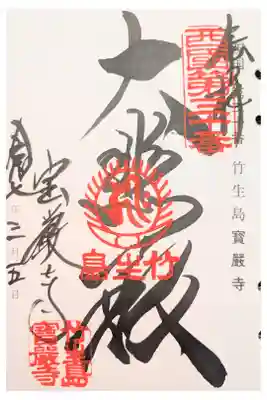 奉拝
西國第三十番
竹生島寶嚴寺
大悲殿
竹生島
宝厳寺
年二月五日
竹生島
寶嚴寺